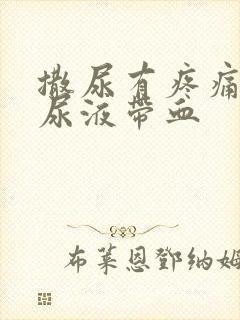 撒尿有疼痛
尿液带血
布莱恩鄧纳姆